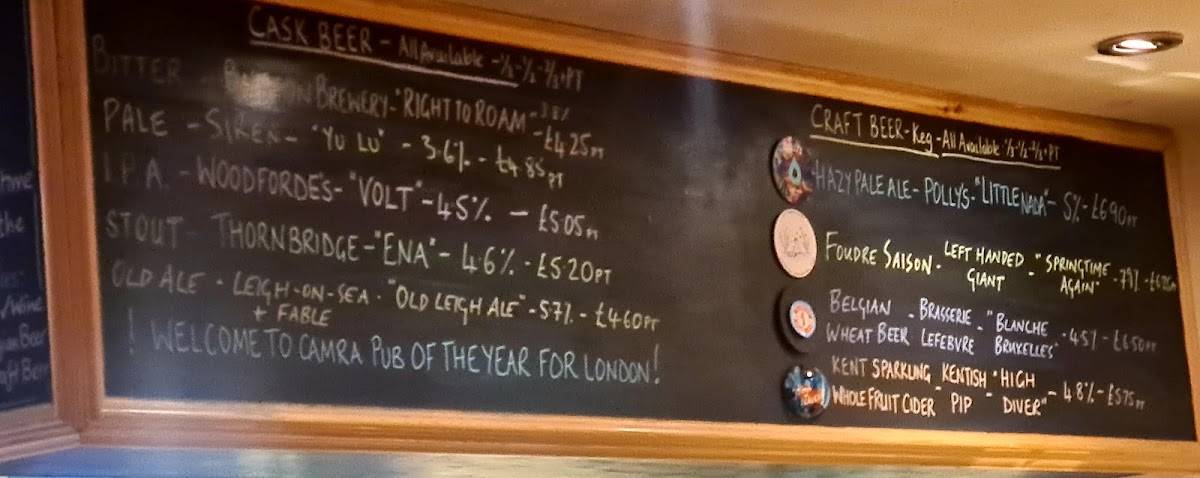 CASK BEER - All Available - 1/3 - 1/2 - 2/3 + PT
BITTER - BREWERY - "RIGHT TO ROAM" - 3.8% - £4.25 PT
PALE - SIREN - "YU LU" - 3.6% - £4.85 PT
I.P.A. - WOODFORDE'S - "VOLT" - 4.5% - £5.05 PT
STOUT - THORNBRIDGE - "ENA" - 4.6% - £5.20 PT
OLD ALE - LEIGH-ON-SEA + FABLE - "OLD LEIGH ALE" - 5.7% - £4.60 PT
! WELCOME TO CAMRA PUB OF THE YEAR FOR LONDON!
CRAFT BEER - Keg - All Available 1/3 - 1/2 - 2/3 + PT
HAZY PALE ALE - POLLY'S - "LITTLE NADA" - 5% - £6.90 PT
FOUDRE SAISON - LEFT HANDED GIANT - "SPRINGTIME AGAIN" - 7.9%
BELGIAN WHEAT BEER - BRASSERIE LEFEBVRE - "BLANCHE BRUXELLES" - 4.5% - £6.50 PT
KENT SPARKLING WHOLE FRUIT CIDER - KENTISH PIP - "HIGH DIVER" - 4.8% - £5.75 PT
the
Wine
Beer
Beer